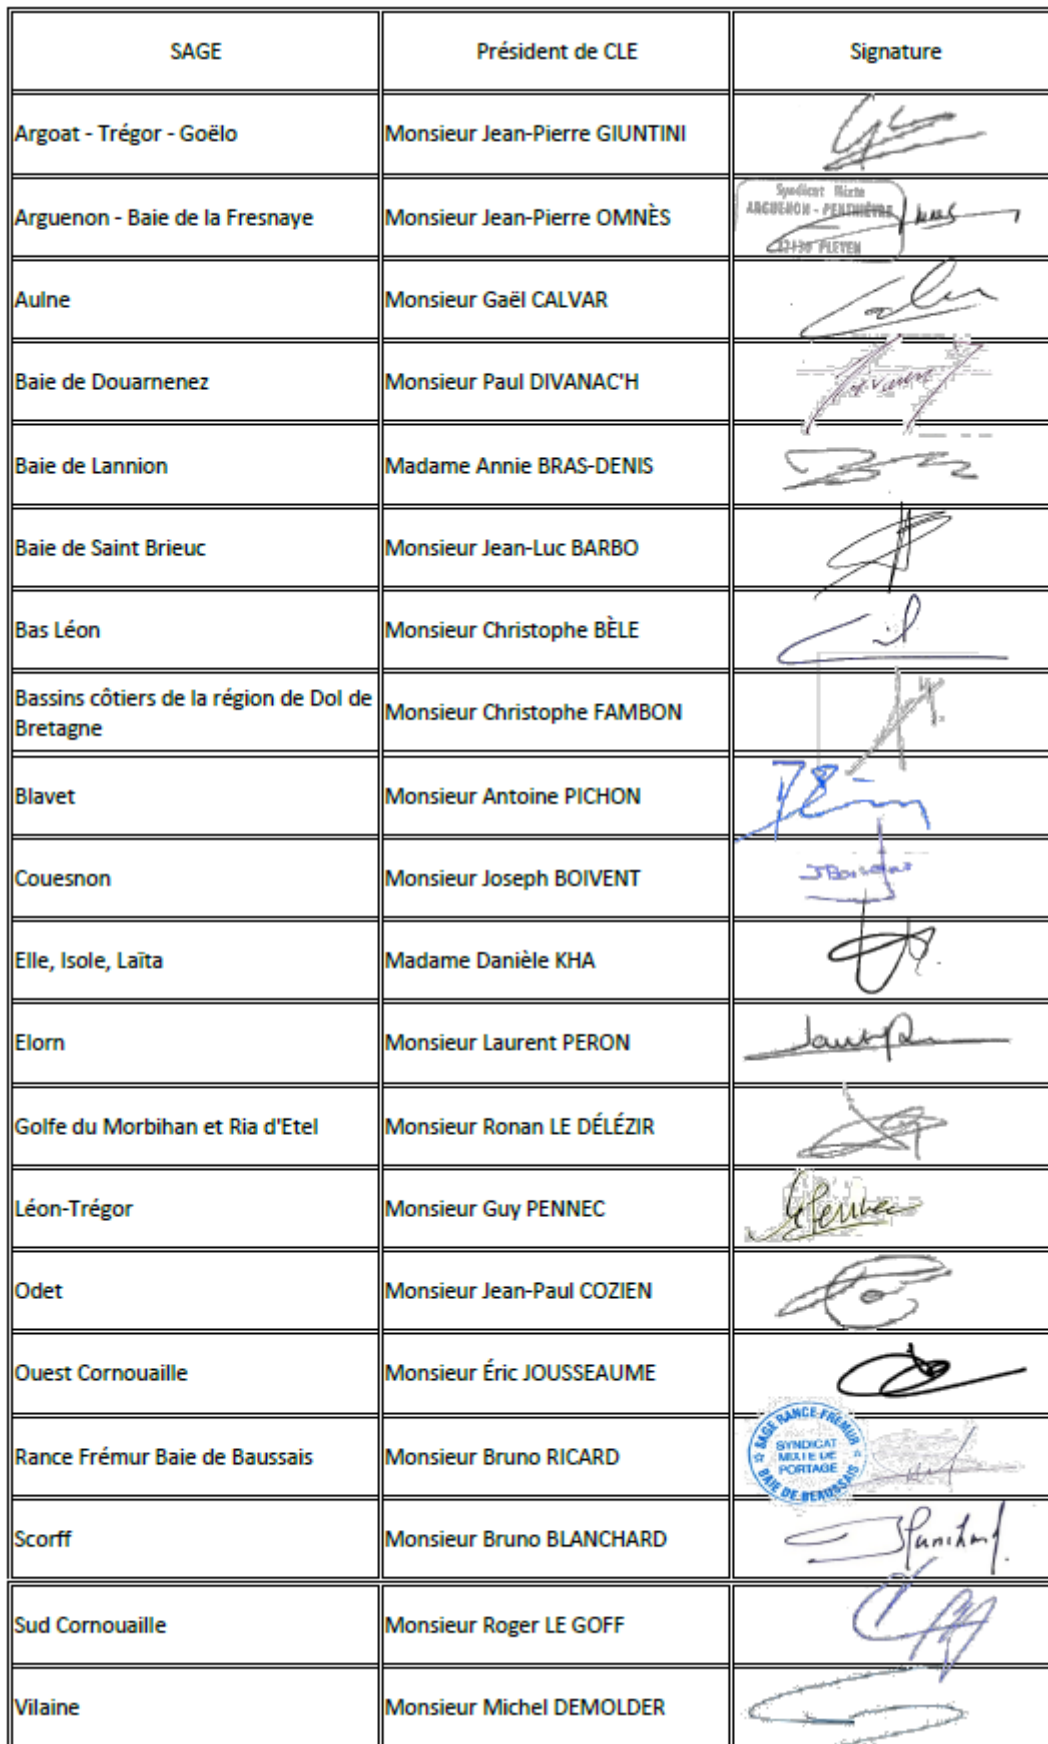 SAGE Président de CLE Signature
Argoat - Trégor - Goëlo Monsieur Jean-Pierre GIUNTINI
Arguenon - Baie de la Fresnaye Monsieur Jean-Pierre OMNÈS
Syndicat Mixte
ARGUENON - PENTHIÈVRE
PLEVEN
Aulne Monsieur Gaël CALVAR
Baie de Douarnenez Monsieur Paul DIVANAC'H
Baie de Lannion Madame Annie BRAS-DENIS
Baie de Saint Brieuc Monsieur Jean-Luc BARBO
Bas Léon Monsieur Christophe BÈLE
Bassins côtiers de la région de Dol de
Bretagne Monsieur Christophe FAMBON
Blavet Monsieur Antoine PICHON
Couesnon Monsieur Joseph BOIVENT
Elle, Isole, Laïta Madame Danièle KHA
Elorn Monsieur Laurent PERON
Golfe du Morbihan et Ria d'Etel Monsieur Ronan LE DÉLÉZIR
Léon-Trégor Monsieur Guy PENNEC
Odet Monsieur Jean-Paul COZIEN
Ouest Cornouaille Monsieur Éric JOUSSEAUME
Rance Frémur Baie de Baussais Monsieur Bruno RICARD
SAGE RANCE-FRÉMUR
SYNDICAT
MIXTE DE
PORTAGE
BAIE DE BEAUSSAIS
Scorff Monsieur Bruno BLANCHARD
Blanchard
Sud Cornouaille Monsieur Roger LE GOFF
Vilaine Monsieur Michel DEMOLDER